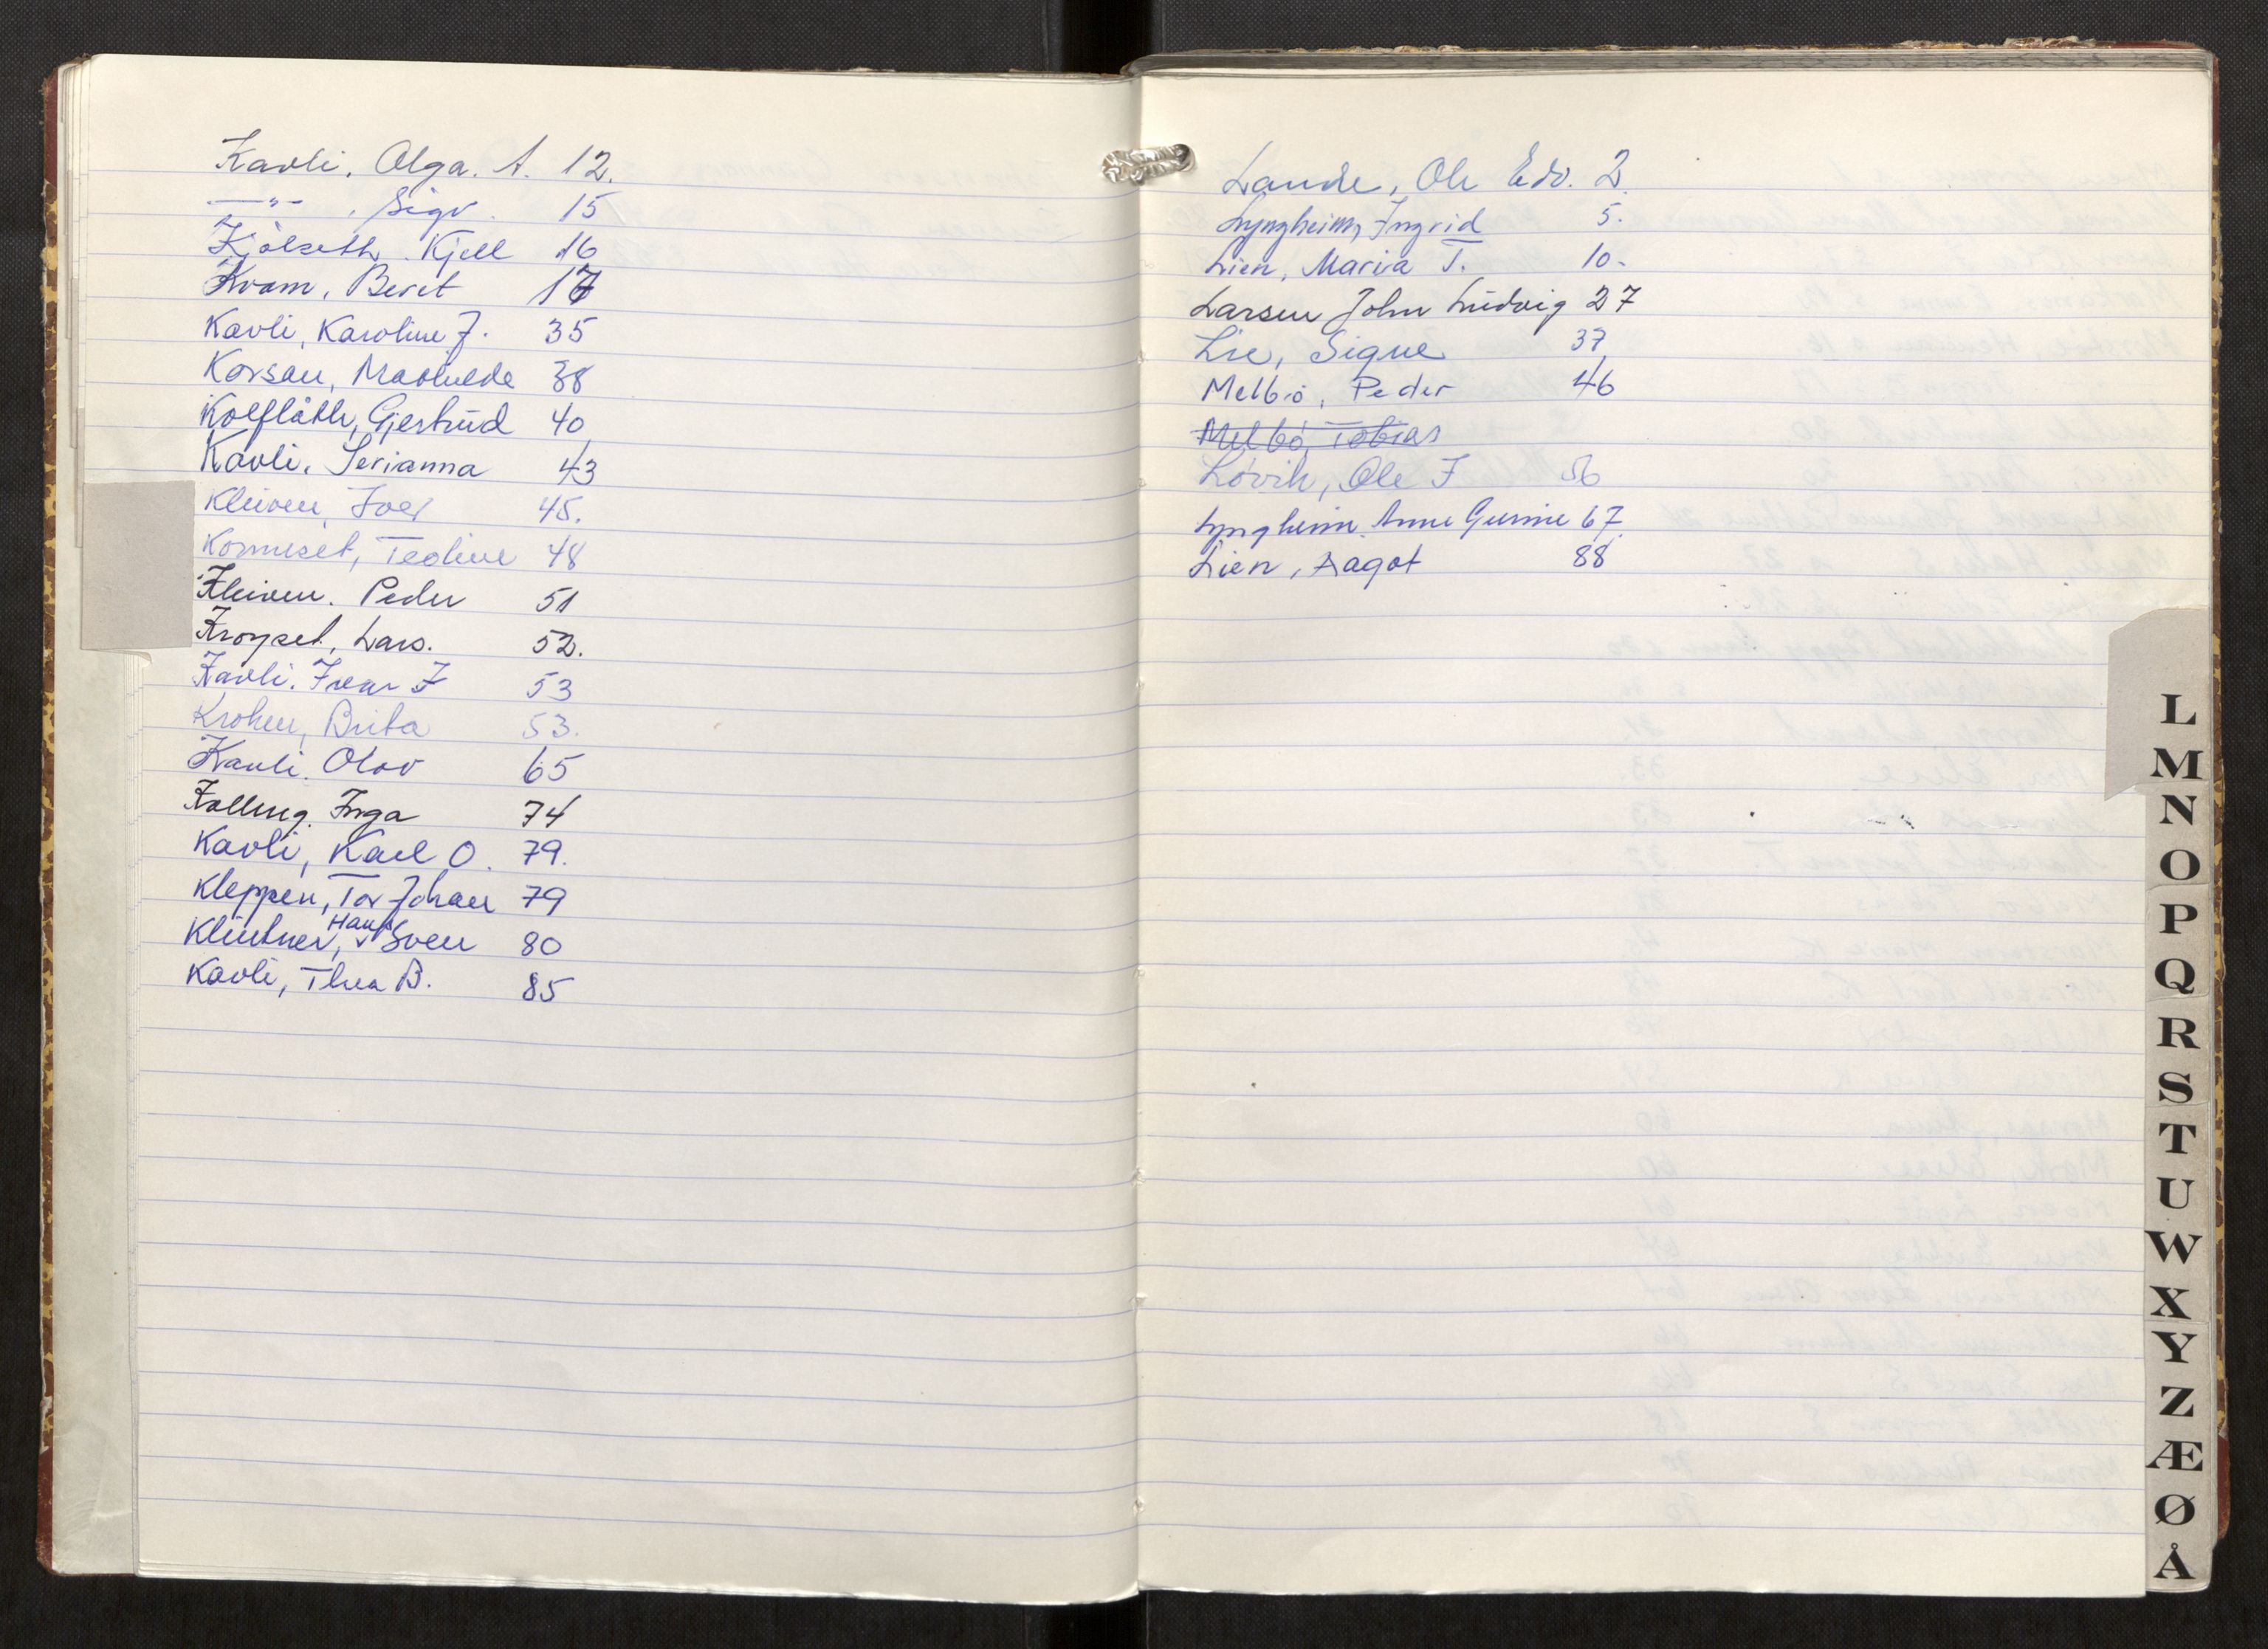 Kavli, Olga. A. 12.
—"— , Sigv. 15
Kjölseth, Kjell 16
Kvam, Beret 17
Kavli, Karoline J. 35
Korsau, Mathilde 38
Kolflåth, Gjertrud 40
Kavli, Serianna 43
Kleiven, Iver 45.
Korneset, Teoline 48
Kleiven. Peder 51
Kroyset, Lars. 52.
Kavli, Ivar I 53
Kroken, Brita 53.
Kavli. Olav 65
Kolling. Inga 74
Kavli, Karl O. 79.
Kleppen, Tor Johan 79
Klintner, Hans Sven 80
Kavli, Thea B. 85
Lande, Ole Edv. 2.
Lyngheim, Ingrid 5.
Lien, Maria T. 10-
Larsen John Ludvig 27
Lie, Signe 37
Melbö, Peder 46
Melbö, Tobias
Lövik, Ole I 56
Lyngheim. Anne Gurine 67.
Lien, Aagot 88
L
M
N
O
P
Q
R
S
T
U
W
X
Y
Z
Æ
Ø
Å